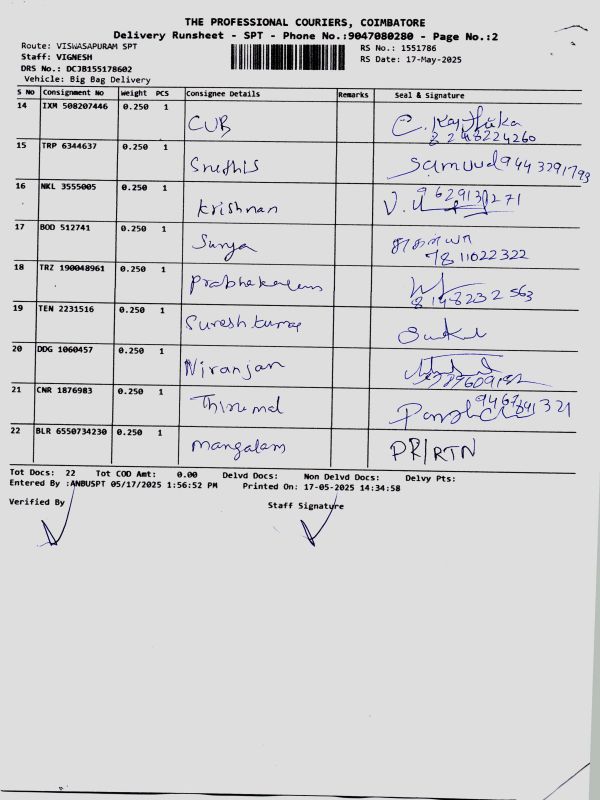 THE PROFESSIONAL COURIERS, COIMBATORE
Delivery Runsheet - SPT - Phone No.:9047080280 - Page No.:2
Route: VISWASAPURAM SPT RS No.: 1551786
Staff: VIGNESH RS Date: 17-May-2025
DRS No.: DCJB155178602
Vehicle: Big Bag Delivery
S No Consignment No Weight PCS Consignee Details Remarks Seal & Signature
14 IXM 508207446 0.250 1 CUB C.
15 TRP 6344637 0.250 1
16 NKL 3555005 0.250 1 Krishnan
17 BOD 512741 0.250 1 Surya
7811022322
18 TRZ 190048961 0.250 1 Prabhakaran
8148232563
19 TEN 2231516 0.250 1 Suresh kumar
20 DDG 1060457 0.250 1 Niranjan
21 CNR 1876983 0.250 1 Thirumal
22 BLR 6550734230 0.250 1 Mangalam PR/RTN
Tot Docs: 22 Tot COD Amt: 0.00 Delvd Docs: Non Delvd Docs: Delvy Pts:
Entered By :ANBUSPT 05/17/2025 1:56:52 PM Printed On: 17-05-2025 14:34:58
Verified By Staff Signature